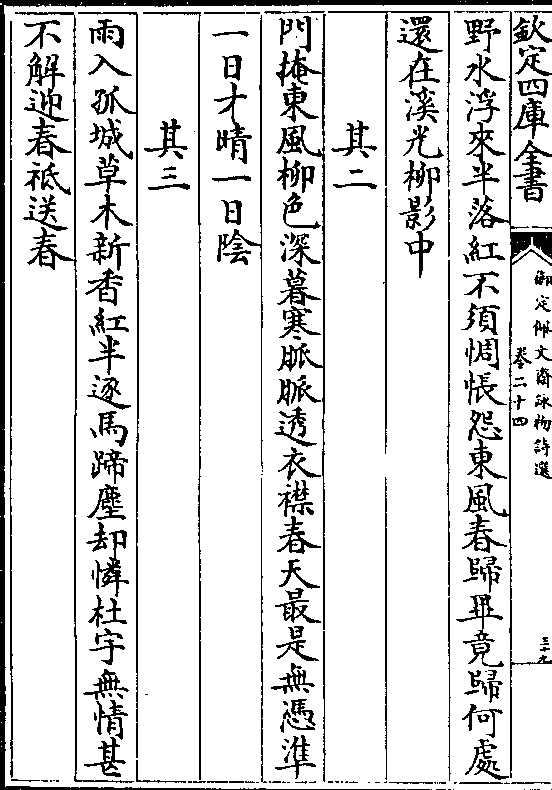 欽定四庫全書
御定佩文齋詠物詩選
卷二十四
三十九
野水浮來半落紅不須惆悵怨東風春歸畢竟歸何處
還在溪光柳影中
其二
門掩東風柳色深暮寒脈脈透衣襟春天最是無憑準
一日才晴一日陰
其三
雨入孤城草木新香紅半逐馬蹄塵却憐杜宇無情甚
不解迎春祗送春